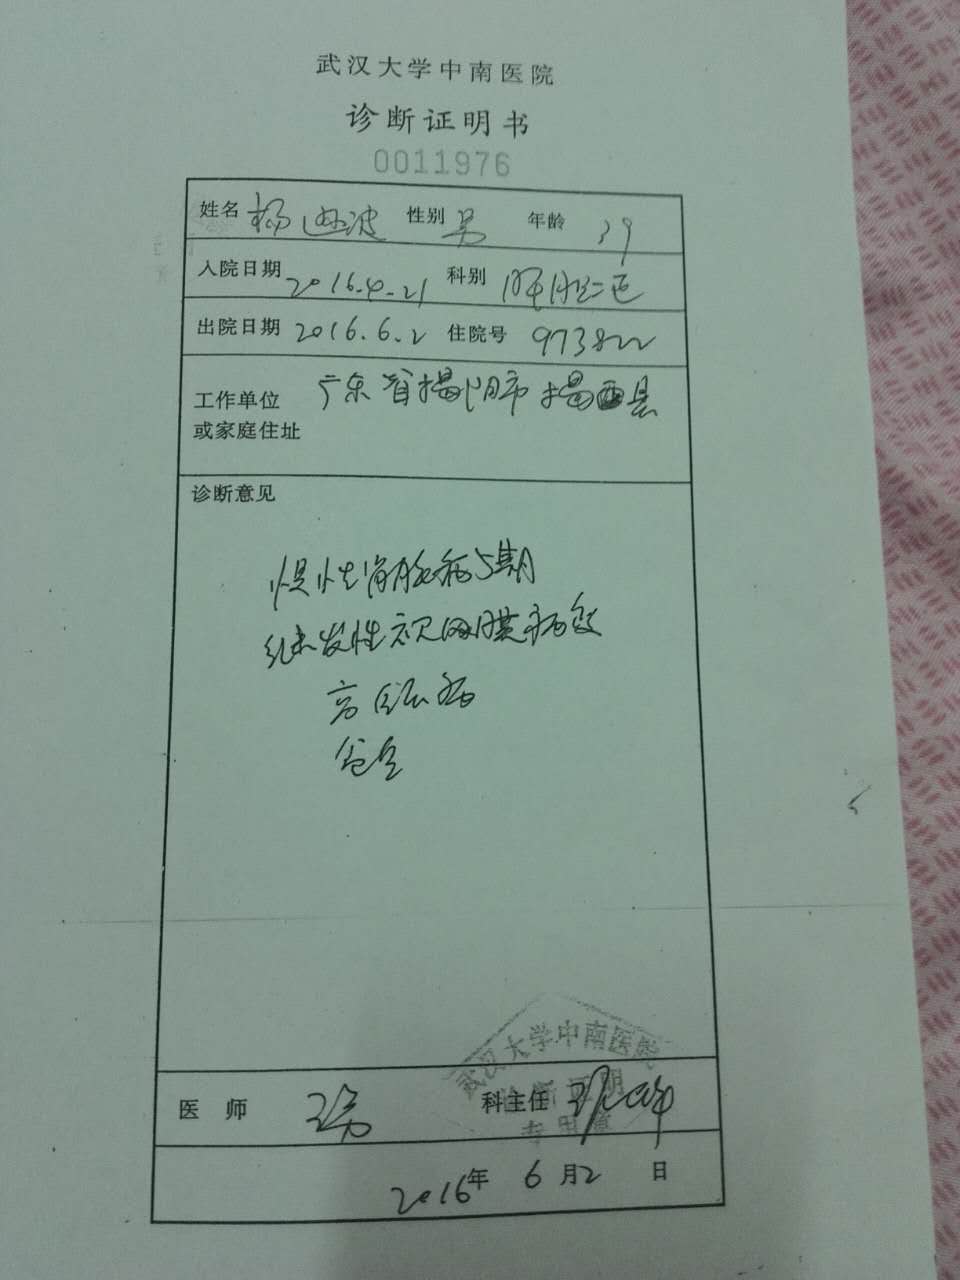 武汉大学中南医院
诊断证明书
0011976
姓名 杨 波 性别 男 年龄 39
入院日期 2016.4.21 科别 肝胆二区
出院日期 2016.6.2 住院号 973822
工作单位 广东省揭阳市揭西县
或家庭住址
诊断意见
慢性肾脏病5期
继发性视网膜病变
高血压病
武汉大学中南医院
诊断证明
专用章
医师 科主任
2016年 6月2日